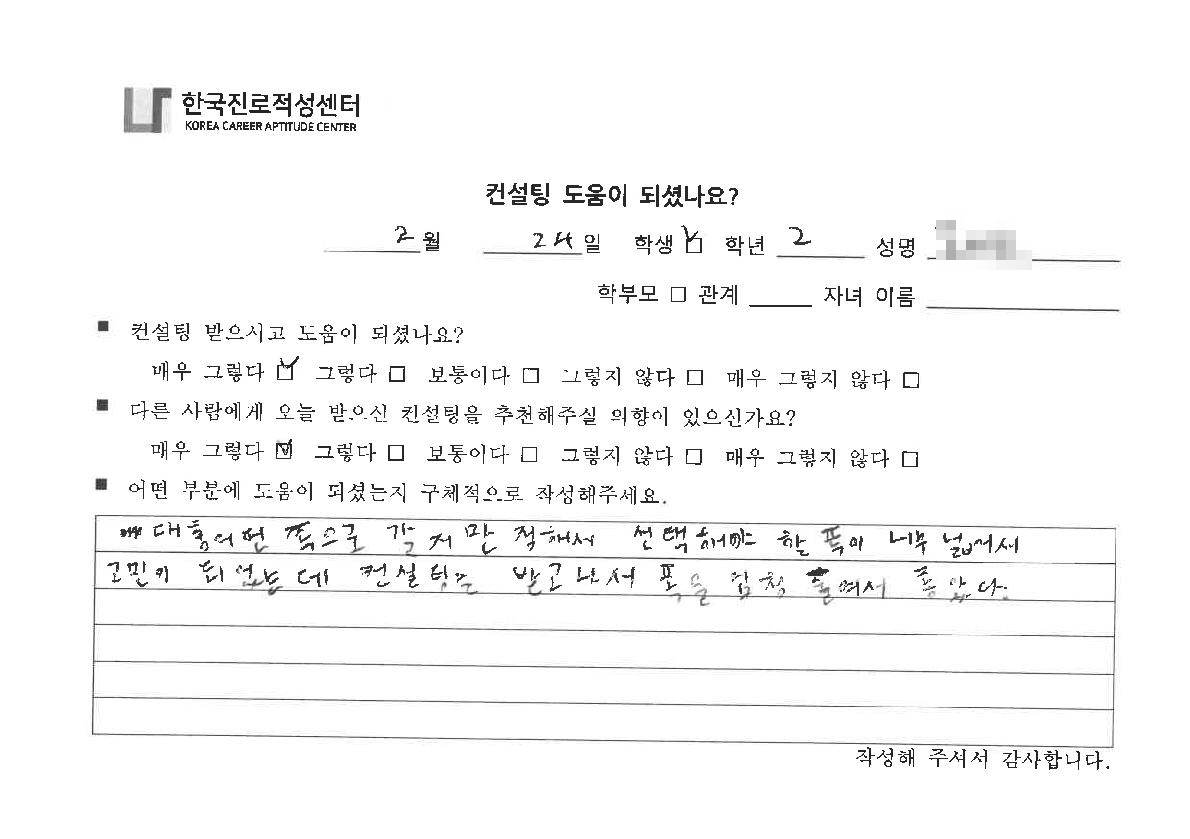 한국진로적성센터
KOREA CAREER APTITUDE CENTER
컨설팅 도움이 되셨나요?
2월 24일 학생 학년 2 성명
학부모 관계 자녀 이름
컨설팅 받으시고 도움이 되셨나요?
매우 그렇다 그렇다 보통이다 그렇지 않다 매우 그렇지 않다
다른 사람에게 오늘 받으신 컨설팅을 추천해주실 의향이 있으신가요?
매우 그렇다 그렇다 보통이다 그렇지 않다 매우 그렇지 않다
어떤 부분에 도움이 되셨는지 구체적으로 작성해주세요.
쪽으로 갈지만 정해서 선택해야 할 폭이 너무 넓어서
고민이 되었는데 컨설팅을 받고 나서 폭을 엄청 줄여서 좋았다.
작성해 주셔서 감사합니다.